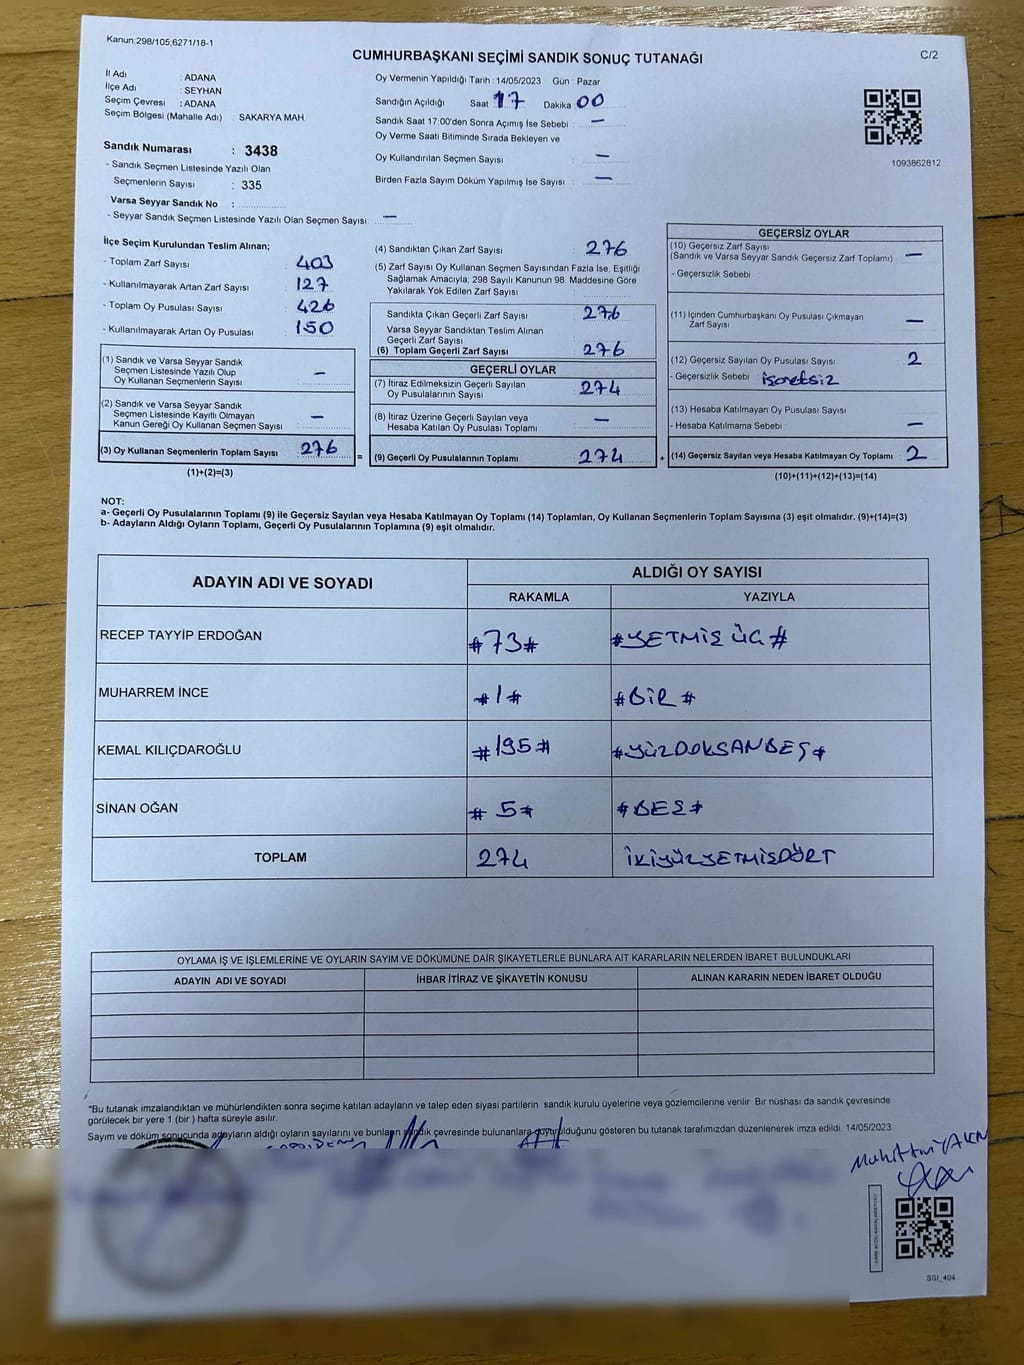 Kanun,298/105,6271/18-1
CUMHURBAŞKANI SEÇİMİ SANDIK SONUÇ TUTANAĞI
C/2
İl Adı : ADANA
İlçe Adı : SEYHAN
Seçim Çevresi : ADANA
Seçim Bölgesi (Mahalle Adı) : SAKARYA MAH.
Sandık Numarası : 3438
- Sandık Seçmen Listesinde Yazılı Olan
Seçmenlerin Sayısı : 335
Varsa Seyyar Sandık No :
- Seyyar Sandık Seçmen Listesinde Yazılı Olan Seçmen Sayısı: —
Oy Vermenin Yapıldığı Tarih : 14/05/2023 Gün : Pazar
Sandığın Açıldığı Saat 17 Dakika 00
Sandık Saat 17:00'den Sonra Açımış İse Sebebi : —
Oy Verme Saati Bitiminde Sırada Bekleyen ve
Oy Kullandırılan Seçmen Sayısı : —
Birden Fazla Sayım Döküm Yapılmış İse Sayısı : —
1093862812
İlçe Seçim Kurulundan Teslim Alınan;
- Toplam Zarf Sayısı : 403
- Kullanılmayarak Artan Zarf Sayısı : 127
- Toplam Oy Pusulası Sayısı : 426
- Kullanılmayarak Artan Oy Pusulası : 150
(1) Sandık ve Varsa Seyyar Sandık
Seçmen Listesinde Yazılı Olup
Oy Kullanan Seçmenlerin Sayısı : —
(2) Sandık ve Varsa Seyyar Sandık
Seçmen Listesinde Kayıtlı Olmayan
Kanun Gereği Oy Kullanan Seçmen Sayısı : —
(3) Oy Kullanan Seçmenlerin Toplam Sayısı : 276
=
(1)+(2)=(3)
(4) Sandıktan Çıkan Zarf Sayısı : 276
(5) Zarf Sayısı Oy Kullanan Seçmen Sayısından Fazla İse, Eşitliği
Sağlamak Amacıyla, 298 Sayılı Kanunun 98. Maddesine Göre
Yakılarak Yok Edilen Zarf Sayısı :
Sandıkta Çıkan Geçerli Zarf Sayısı : 276
Varsa Seyyar Sandıktan Teslim Alınan
Geçerli Zarf Sayısı :
(6) Toplam Geçerli Zarf Sayısı : 276
GEÇERLİ OYLAR
(7) İtiraz Edilmeksizin Geçerli Sayılan
Oy Pusulalarının Sayısı : 274
(8) İtiraz Üzerine Geçerli Sayılan veya
Hesaba Katılan Oy Pusulası Toplamı : —
(9) Geçerli Oy Pusulalarının Toplamı : 274
+
GEÇERSİZ OYLAR
(10) Geçersiz Zarf Sayısı
(Sandık ve Varsa Seyyar Sandık Geçersiz Zarf Toplamı) : —
- Geçersizlik Sebebi :
(11) İçinden Cumhurbaşkanı Oy Pusulası Çıkmayan
Zarf Sayısı : —
(12) Geçersiz Sayılan Oy Pusulası Sayısı : 2
- Geçersizlik Sebebi : işaretsiz
(13) Hesaba Katılmayan Oy Pusulası Sayısı
- Hesaba Katılmama Sebebi : —
(14) Geçersiz Sayılan veya Hesaba Katılmayan Oy Toplamı : 2
(10)+(11)+(12)+(13)=(14)
NOT:
a- Geçerli Oy Pusulalarının Toplamı (9) ile Geçersiz Sayılan veya Hesaba Katılmayan Oy Toplamı (14) Toplamları, Oy Kullanan Seçmenlerin Toplam Sayısına (3) eşit olmalıdır. (9)+(14)=(3)
b- Adayların Aldığı Oyların Toplamı, Geçerli Oy Pusulalarının Toplamına (9) eşit olmalıdır.
ADAYIN ADI VE SOYADI
ALDIĞI OY SAYISI
RAKAMLA YAZIYLA
RECEP TAYYİP ERDOĞAN #73# #YETMİŞ ÜÇ#
MUHARREM İNCE #1# #BİR#
KEMAL KILIÇDAROĞLU #195# #YÜZDOKSANBEŞ#
SİNAN OĞAN #5# #BEŞ#
TOPLAM 274 İKİYÜZYETMİŞDÖRT
OYLAMA İŞ VE İŞLEMLERİNE VE OYLARIN SAYIM VE DÖKÜMÜNE DAİR ŞİKAYETLERLE BUNLARA AİT KARARLARIN NELERDEN İBARET BULUNDUKLARI
ADAYIN ADI VE SOYADI İHBAR İTİRAZ VE ŞİKAYETİN KONUSU ALINAN KARARIN NEDEN İBARET OLDUĞU
*Bu tutanak imzalandıktan ve mühürlendikten sonra seçime katılan adayların ve talep eden siyasi partilerin sandık kurulu üyelerine veya gözlemcilerine verilir. Bir nüshası da sandık çevresinde
görülecek bir yere 1 (bir) hafta süreyle asılır.
Sayım ve döküm sonucunda adayların aldığı oyların sayılarını ve bunların sandık çevresinde bulunanlara duyurulduğunu gösteren bu tutanak tarafımızdan düzenlenerek imza edildi. 14/05/2023
SSI_404